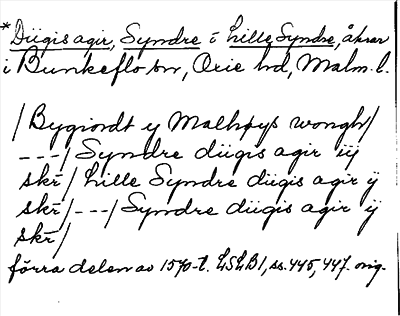 *Diigis agir, Syndre i Lille Syndre, åkrar
i Bunkeflo sn, Oxie hd, Malm. l.
/Bygiordt y Malhøys wongh/
---/Syndre diigis agir iij
skr̄/Lille Syndre diigis agir ij
skr̄/---/Syndre diigis agir ij
skr̄/
förra delen av 1570-t. LSLB1, ss. 445, 447. orig.